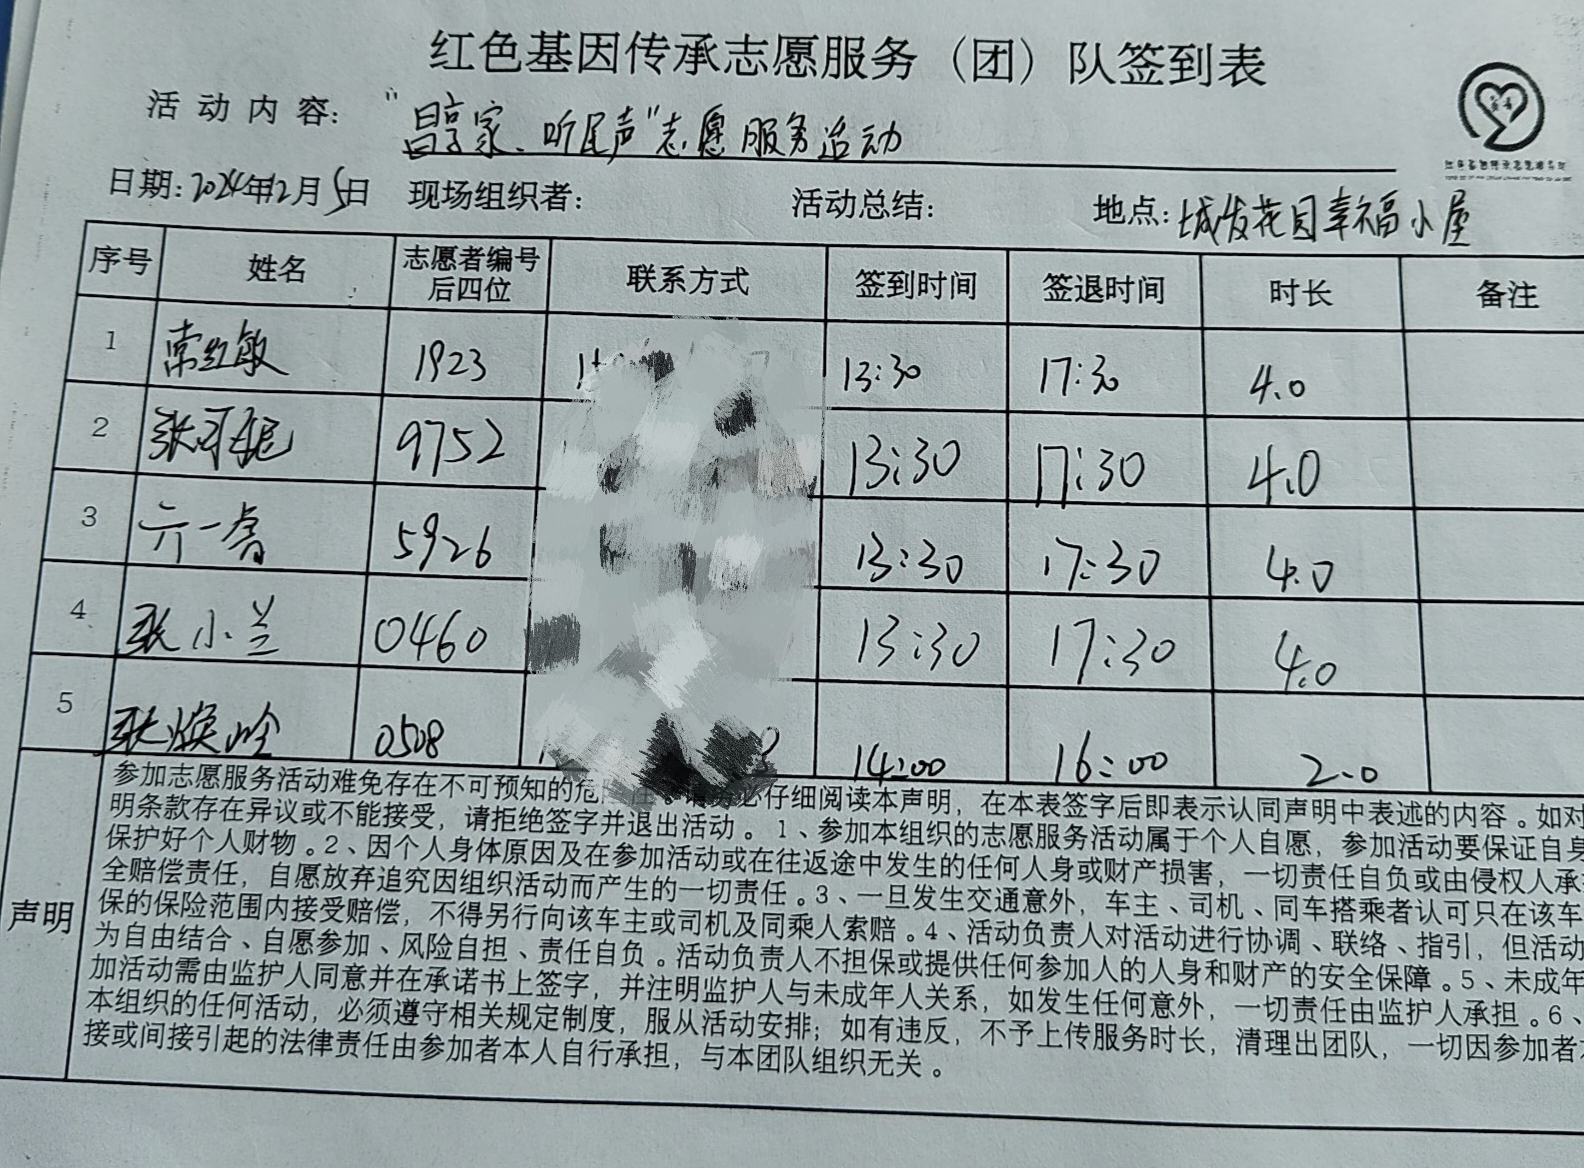 红色基因传承志愿服务（团）队签到表
活动内容：“ 家、听 声”志愿服务活动
日期：2024年12月5日 现场组织者： 活动总结： 地点：城发花园幸福小屋
序号 姓名 志愿者编号后四位 联系方式 签到时间 签退时间 时长 备注
1 常红敏 1923 13:30 17:30 4.0
2 张 9752 13:30 17:30 4.0
3 一 5926 13:30 17:30 4.0
4 张小兰 0460 13:30 17:30 4.0
5 焕 0508 14:00 16:00 2.0
声明
参加志愿服务活动难免存在不可预知的危 必仔细阅读本声明，在本表签字后即表示认同声明中表述的内容。如对
明条款存在异议或不能接受，请拒绝签字并退出活动。1、参加本组织的志愿服务活动属于个人自愿，参加活动要保证自身
保护好个人财物。2、因个人身体原因及在参加活动或在往返途中发生的任何人身或财产损害，一切责任自负或由侵权人承
全赔偿责任，自愿放弃追究因组织活动而产生的一切责任。3、一旦发生交通意外，车主、司机、同车搭乘者认可只在该车
保的保险范围内接受赔偿，不得另行向该车主或司机及同乘人索赔。4、活动负责人对活动进行协调、联络、指引，但活动
为自由结合、自愿参加、风险自担、责任自负。活动负责人不担保或提供任何参加人的人身和财产的安全保障。5、未成年
加活动需由监护人同意并在承诺书上签字，并注明监护人与未成年人关系，如发生任何意外，一切责任由监护人承担。6、
本组织的任何活动，必须遵守相关规定制度，服从活动安排；如有违反，不予上传服务时长，清理出团队，一切因参加者
接或间接引起的法律责任由参加者本人自行承担，与本团队组织无关。